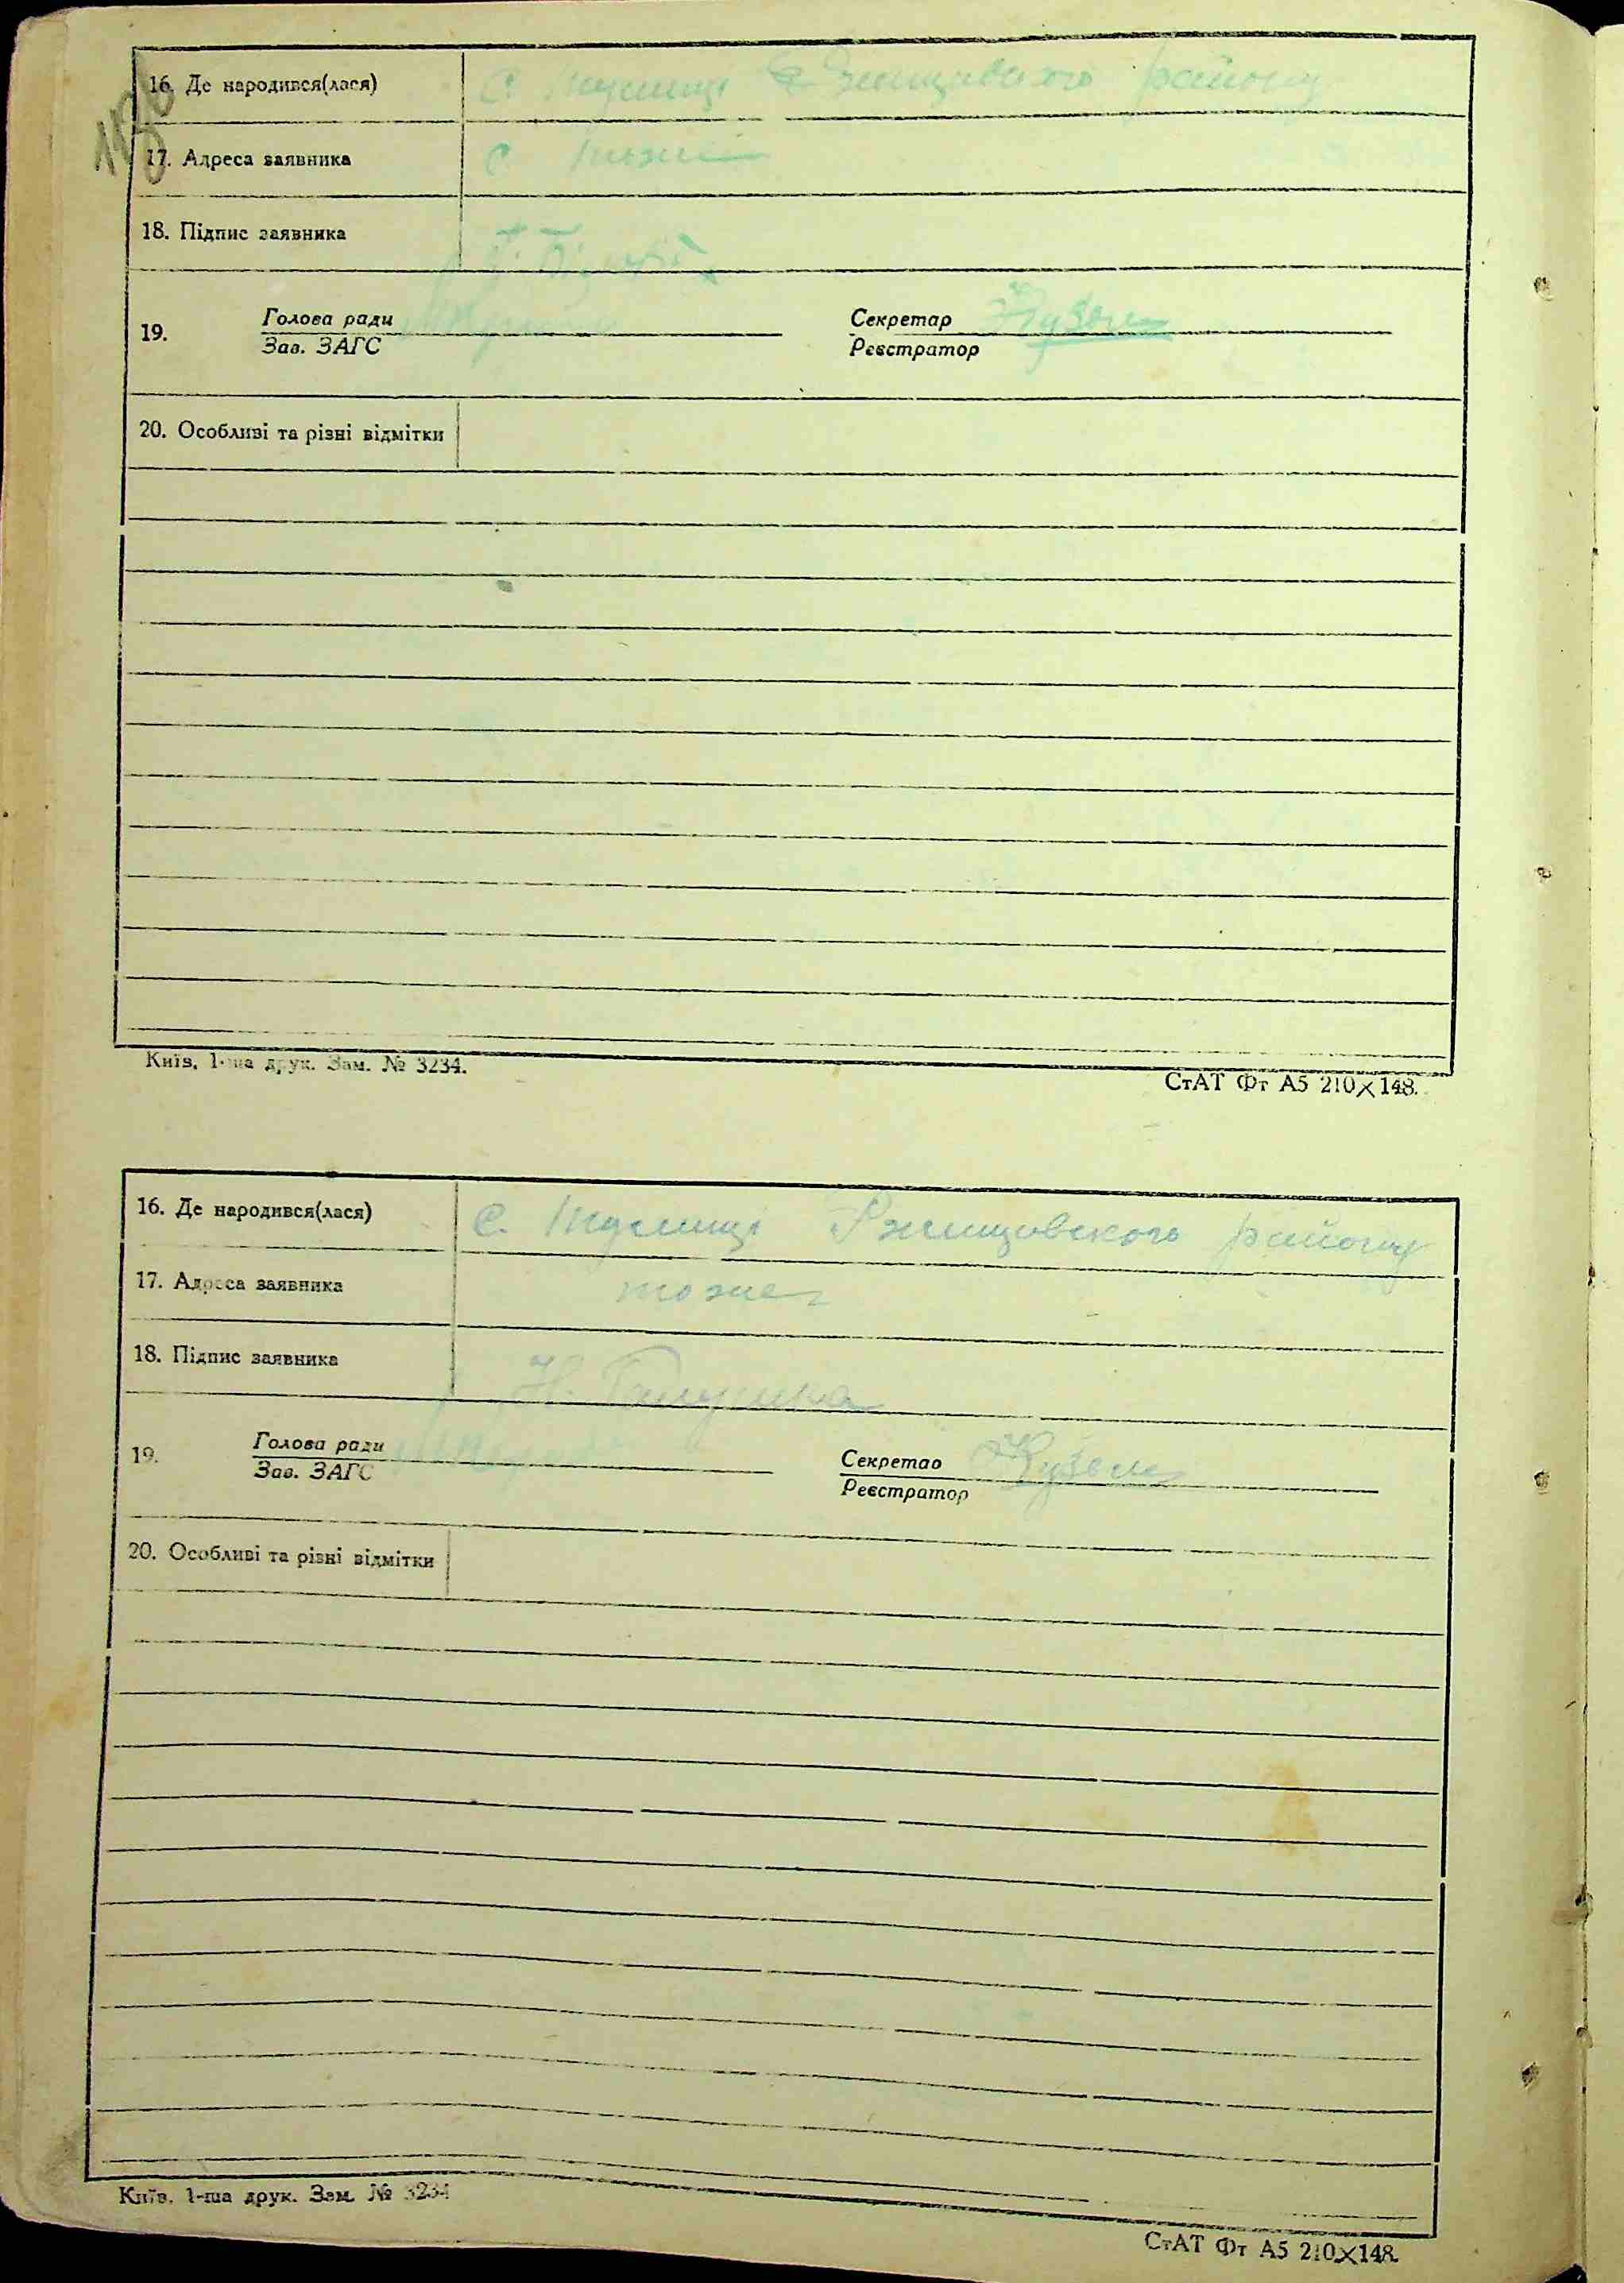 16. Де народився(лася) с. Тулинці Ржищівського району
17. Адреса заявника с.
18. Підпис заявника
19. Голова ради Секретар
Зав. ЗАГС Реєстратор
20. Особливі та різні відмітки
Київ. 1-ша друк. Зам. № 3234.
СтАТ Фт А5 210×148.
16. Де народився(лася) с. Тулинці Ржищовского району
17. Адреса заявника тоже
18. Підпис заявника Н. Галушка
19. Голова ради Секретар
Зав. ЗАГС Реєстратор
20. Особливі та різні відмітки
Київ. 1-ша друк. Зам. № 3234
СтАТ Фт А5 210×148.